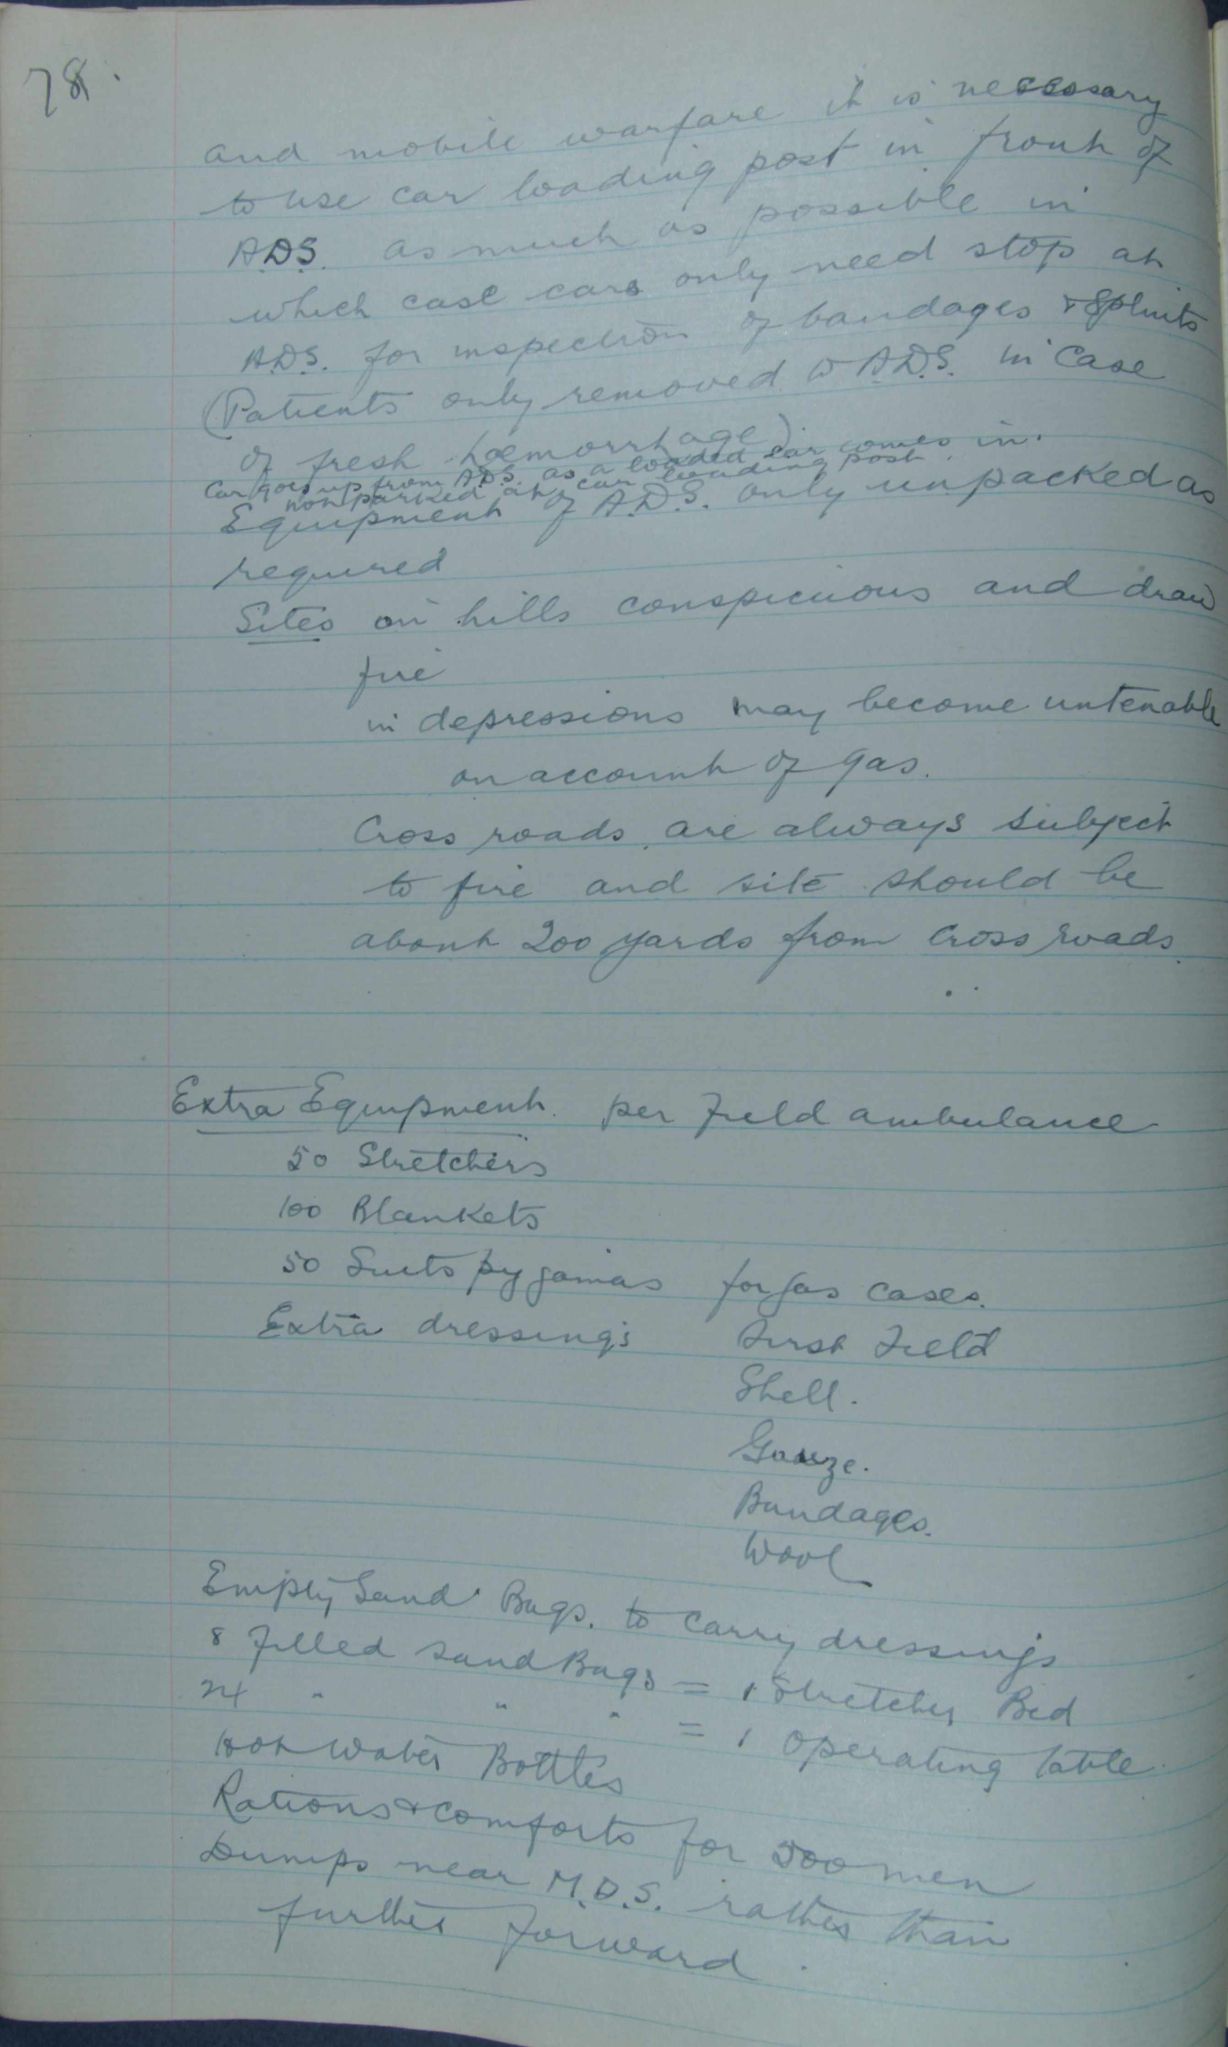 78.
and mobile warfare it is necessary
to use car loading post in front of
A.D.S. as much as possible in
which case cars only need stop at
A.D.S. for inspection of bandages & Splints
(Patients only removed to A.D.S. in case
of fresh hœmorrhage)
Car goes up from A.D.S. as a loaded car comes in.
not parked at car loading post.
Equipment of A.D.S. only unpacked as
required
Sites on hills conspicuous and draw
fire
in depressions may become untenable
on account of gas.
Cross roads are always subject
to fire and site should be
about 200 yards from cross roads.
Extra Equipment. per Field ambulance
50 Stretchers
100 Blankets
50 Suits pyjamas for gas cases.
Extra dressings First Field
Shell.
Gauze.
Bandages.
Wool
Empty Sand Bags. to carry dressings
8 Filled Sand Bags = 1 Stretcher Bed
24 " " " = 1 operating table.
Hot water Bottles
Rations & comforts for 500 men
Dumps near M.D.S. rather than
further forward.